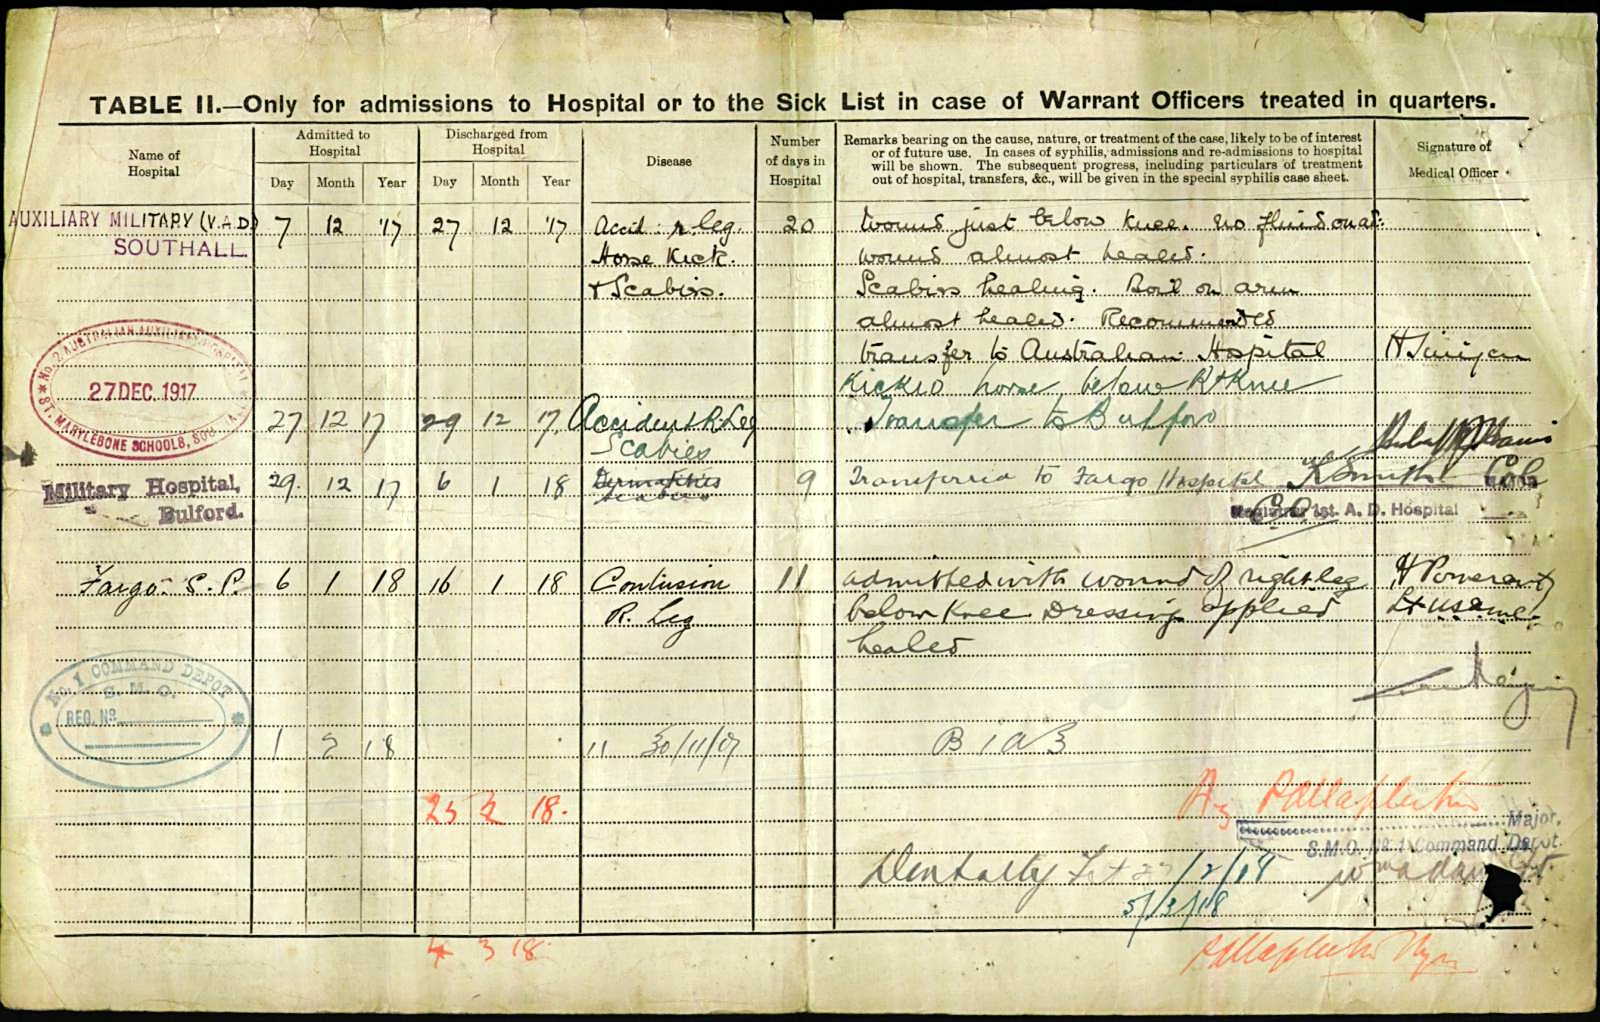 TABLE II.—Only for admissions to Hospital or to the Sick List in case of Warrant Officers treated in quarters.
Name of Hospital
Admitted to Hospital
Discharged from Hospital
Disease
Number of days in Hospital
Remarks bearing on the cause, nature, or treatment of the case, likely to be of interest
or of future use. In cases of syphilis, admissions and re-admissions to hospital
will be shown. The subsequent progress, including particulars of treatment
out of hospital, transfers, &c., will be given in the special syphilis case sheet.
Signature of Medical Officer
Day Month Year Day Month Year
AUXILIARY MILITARY (V.A.D.) 7 12 '17 27 12 '17 Accid: r. leg. 20 Wound just below knee. no fluid
SOUTHALL.
Horse Kick. wound almost healed.
+ Scabies. Scabies healing. Boil on arm
almost healed. Recommended
transfer to Australian Hospital
Kicked horse below Rt Knee
No. 2 AUSTRALIAN AUXILIARY HOSPITAL
27 DEC. 1917
ST. MARYLEBONE SCHOOLS,
27 12 17 29 12 17 Accident R. Leg Transfer to Bulford
Scabies
Military Hospital, Bulford.
29. 12 17 6 1 18 Dermatitis 9 Transferred to Fargo Hospital
Scabies
Registrar 1st. A. D. Hospital
Fargo. S. P. 6 1 18 16 1 18 Contusion 11 admitted with wound of right leg
R. Leg below Knee Dressing applied
healed
No. 1 COMMAND DEPOT
S. M. O.
REG. No.
1 2 18 11 30/11/17 B 1 a 3
25 2 18.
A3
Major,
S.M.O. No. 1 Command Depot.
Dentally Fit /2/18
5/3/18
4 3 18